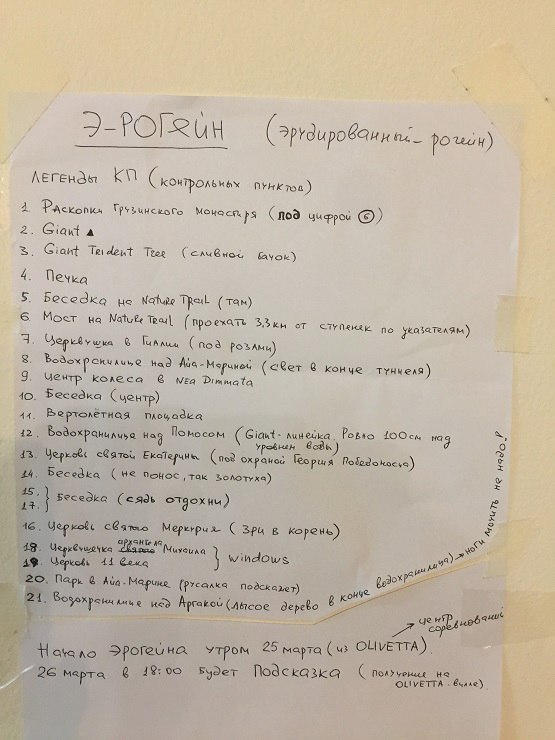 Э-РОГЕЙН (эрудированный-рогейн)
ЛЕГЕНДЫ КП (контрольных пунктов)
1. Раскопки Грузинского монастыря (под цифрой 6)
2. Giant ▲
3. Giant Teident Tree (сливной бачок)
4. Печка
5. Беседка на Nature Trail (там)
6 Мост на Nature Trail (проехать 3,3 км от ступенек по указателям)
7. Церквушка в Гиллии (под розами)
8. Водохранилище над Айа-Мариной (свет в конце туннеля)
9. Центр колеса в Nea Dimmata
10. Беседка (центр)
11. Вертолётная площадка
12. Водохранилище над Помосом (Giant-линейка. Ровно 100см над
уровнем воды)
13. Церковь святой Екатерины (под охраной Георгия Победоносца)
14. Беседка (не понос, так золотуха)
15. } Беседка (сядь отдохни)
17.
16. Церковь святого Меркурия (Зри в корень)
18. Церквушечка архангела Михаила } windows
19. Церковь 11 века
20. Парк в Айа-Марине (русалка подскажет)
21. Водохранилище над Аргакой (лысое дерево в конце водохранилища) → ноги мочить не надо!
Начало Эрогейна утром 25 марта (из OLIVETTA). → центр
соревнований
26 марта в 18:00 будет Подсказка (получение на
OLIVETTA-вилле).